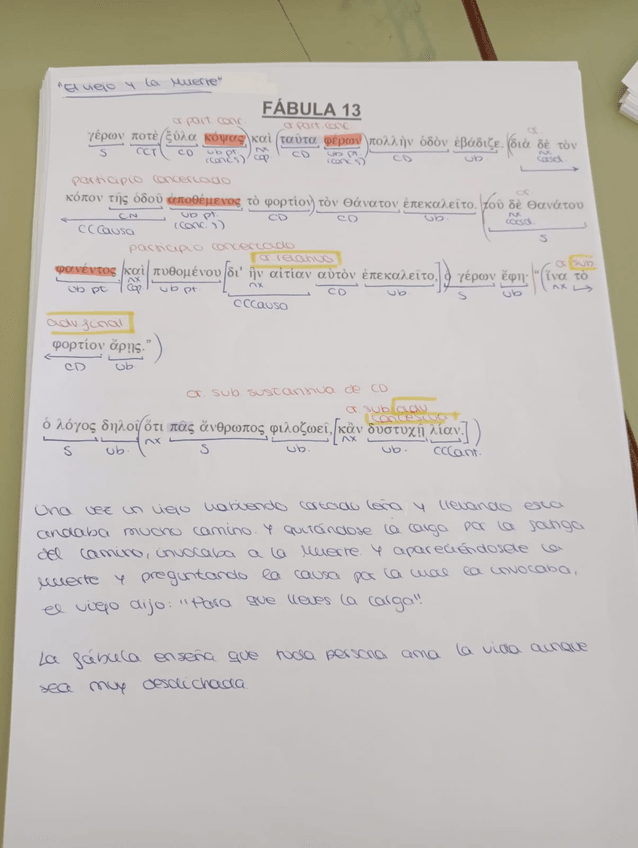 "El viejo y la Muerte"
FÁBULA 13
o part. conc. o part. conc.
γέρων ποτὲ (ξύλα κόψας) καὶ (ταῦτα φέρων) πολλὴν ὁδὸν ἐβάδιζε. (διὰ δὲ τὸν
S CCT CD vb pt. (conc. S) nx cop CD vb pt. (conc. S) CD vb
participio concertado
κόπον τῆς ὁδοῦ ἀποθέμενος τὸ φορτίον) τὸν Θάνατον ἐπεκαλεῖτο. (τοῦ δὲ Θανάτου
CCCausa CN vb pt. (conc. S) CD CD vb. S
participio concertado o relativo o sub
φανέντος καὶ πυθομένου [δι' ἣν αἰτίαν αὐτὸν ἐπεκαλεῖτο,]) ὁ γέρων ἔφη· "(ἵνα τὸ
vb pt nx cop vb pt nx CCCausa CD vb S vb nx
adv final
φορτίον ἄρῃς.")
CD vb
o sub. sustantiva de CD
o sub adv concesiva
ὁ λόγος δηλοῖ (ὅτι πᾶς ἄνθρωπος φιλοζωεῖ, [κἂν δυστυχῇ λίαν.])
S vb. nx S vb. nx vb. CCCant.
Una vez un viejo habiendo cortado leña y llevando esta
andaba mucho camino. Y quitándose la carga por la fatiga
del camino, invocaba a la Muerte. Y apareciéndosele la
Muerte y preguntando la causa por la cual la invocaba,
el viejo dijo: "Para que lleves la carga".
La fábula enseña que toda persona ama la vida aunque
sea muy desdichada.